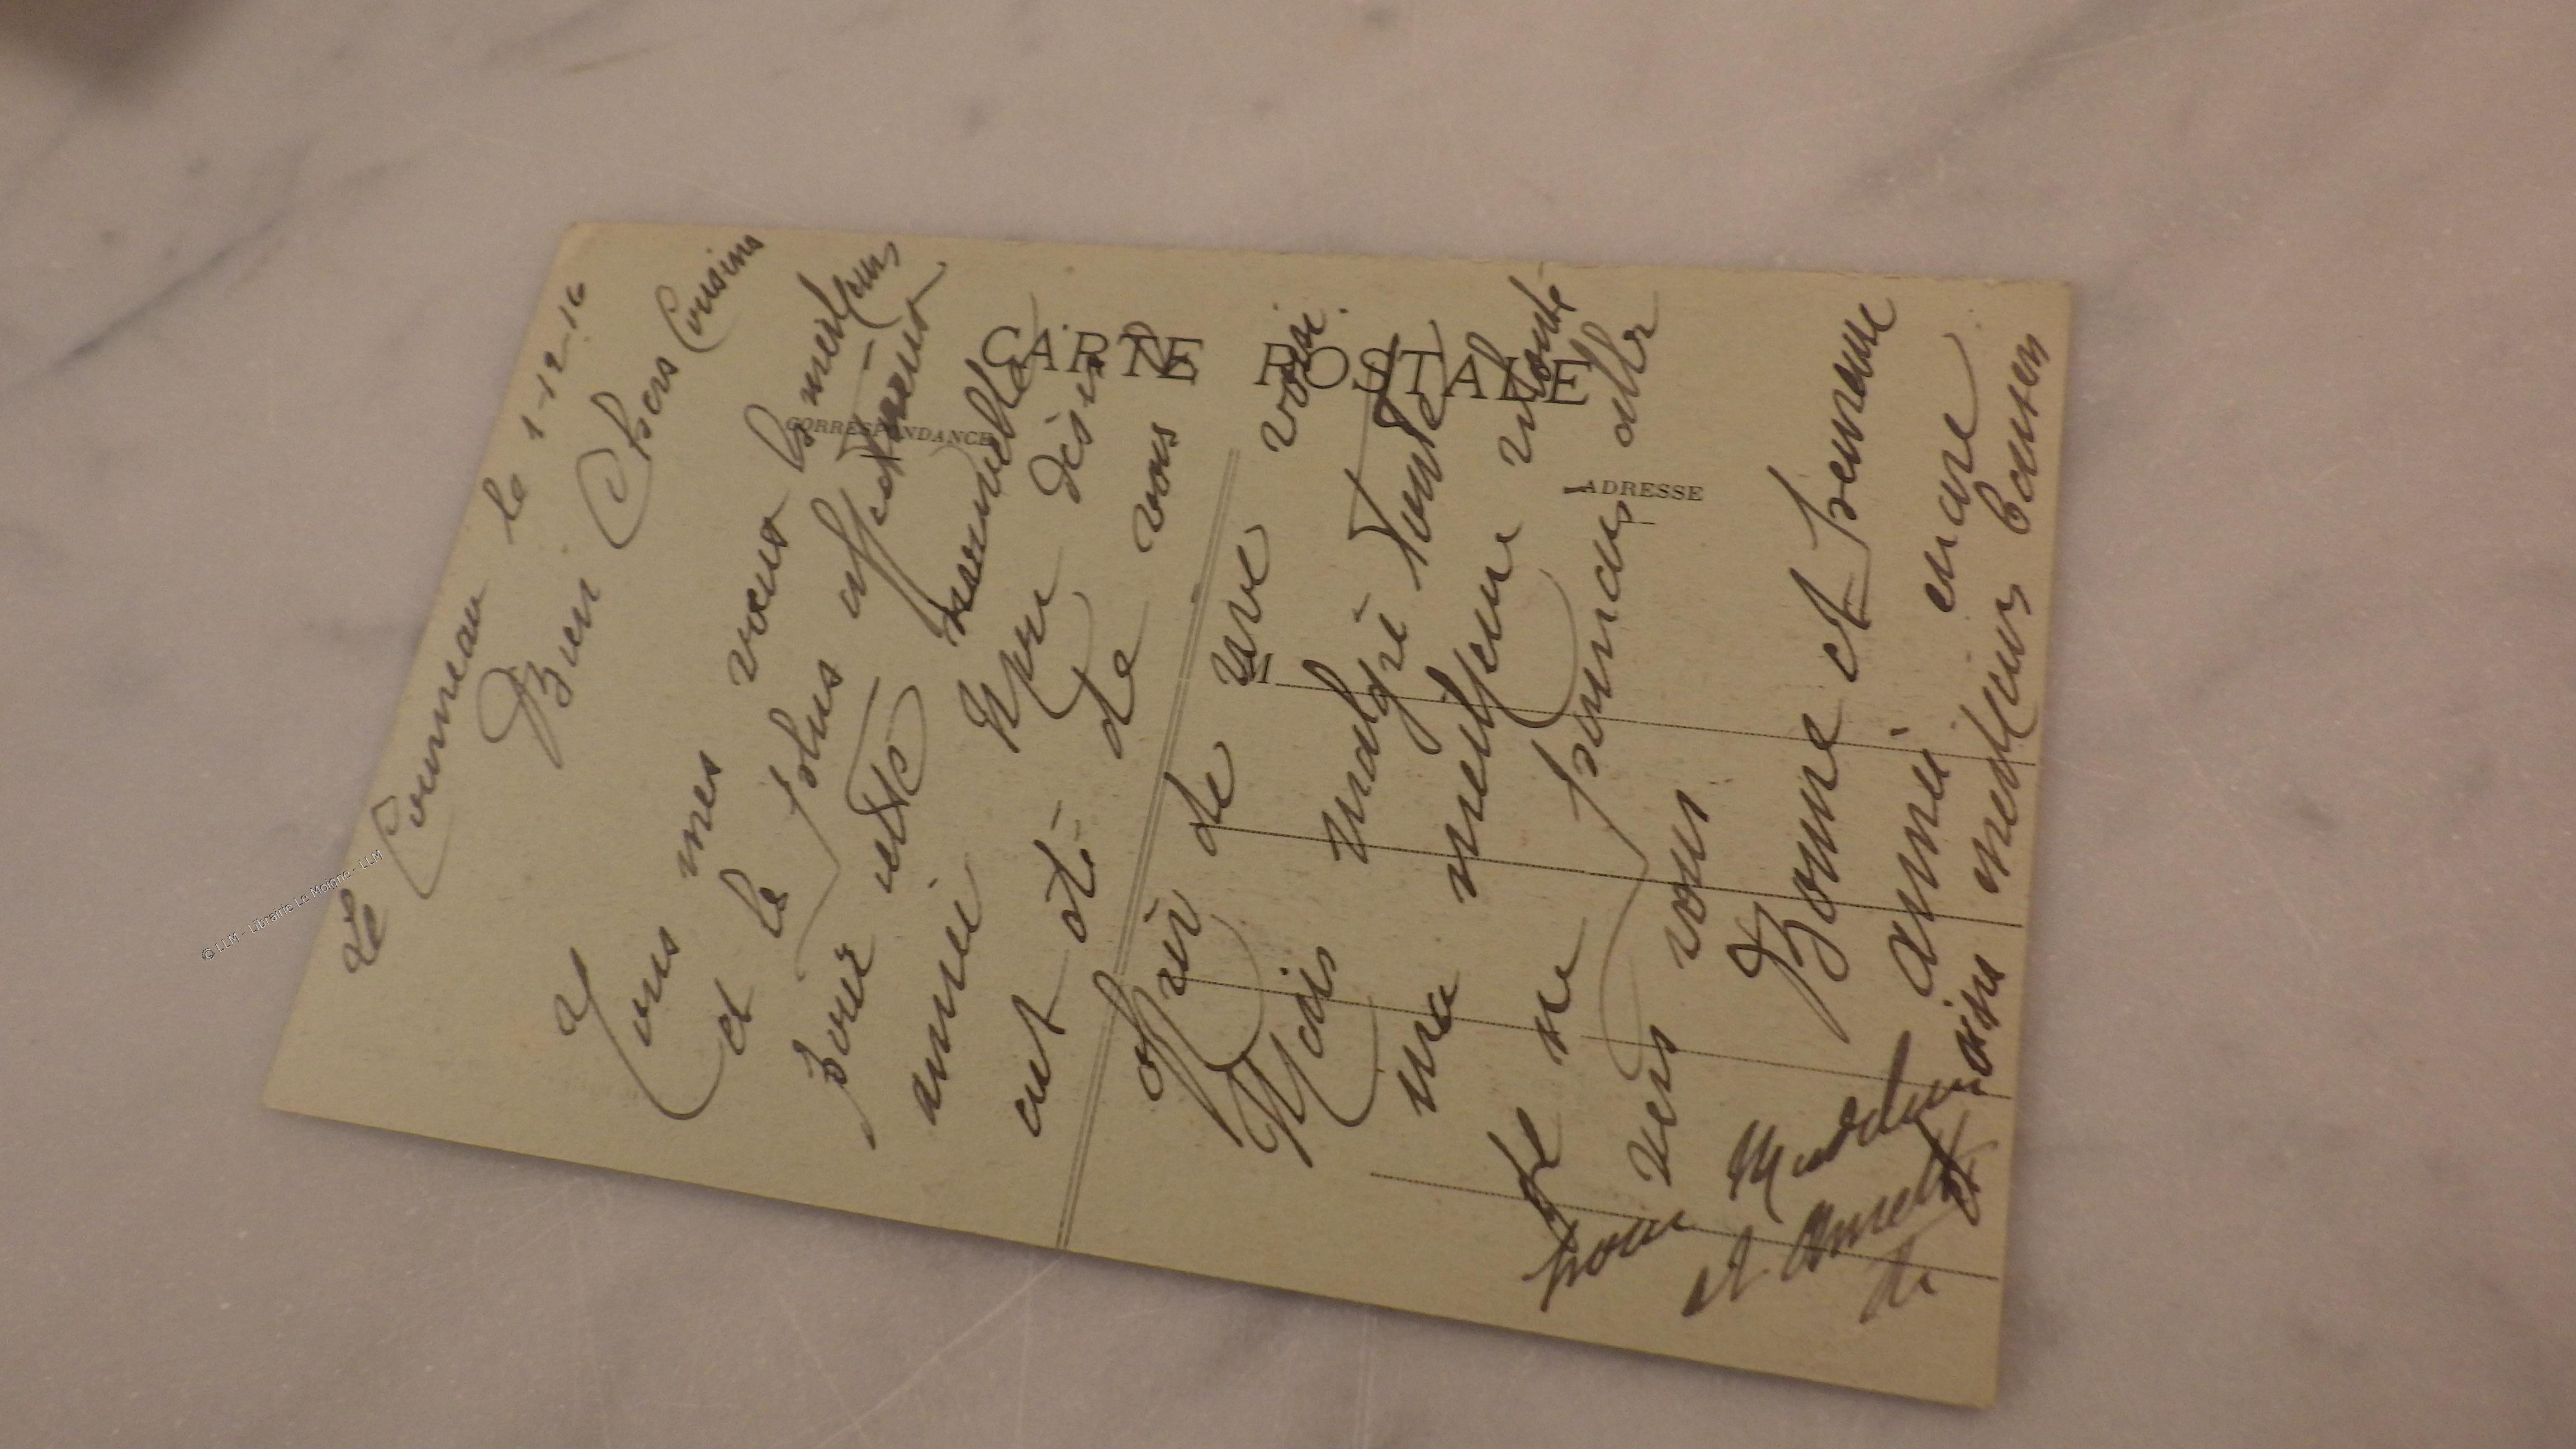 CARTE POSTALE
CORRESPONDANCE
ADRESSE
M
Le Courneau le 1-12-16
Bien Chers Cousins
Tous mes vœux les meilleurs
et les plus affectueux
pour cette nouvelle
année Mon désir
eut été de vous
offrir de vive voix.
Mais malgré toute
ma meilleure volonté
je ne pourrais aller
vers vous
Bonne et heureuse
année encore
meilleurs baisers
pour
et
© LLM - Librairie Le Moigne - LLM